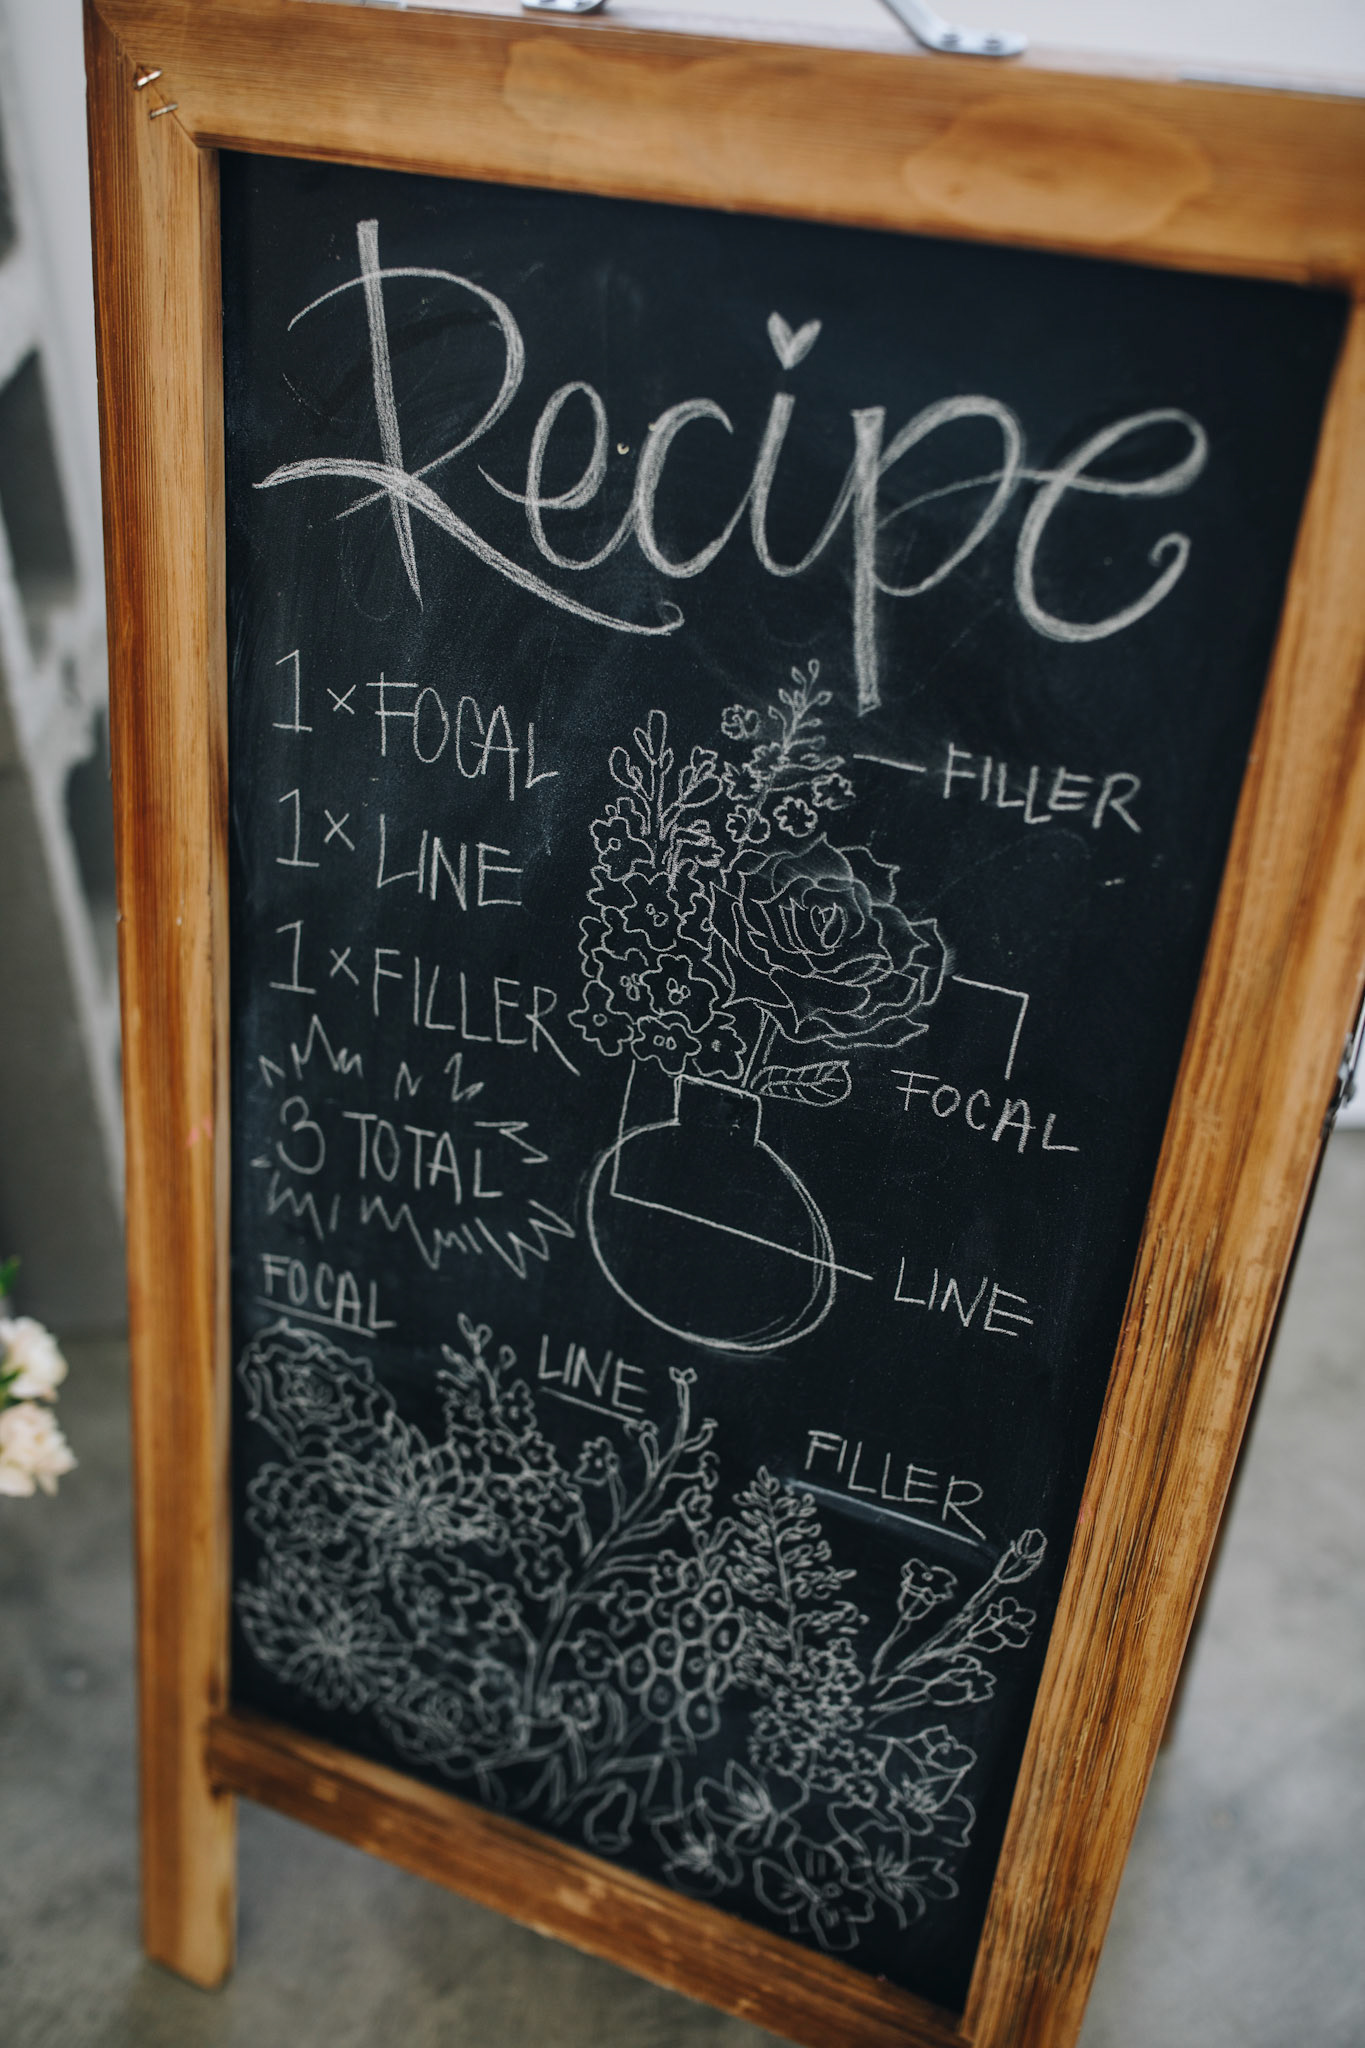 Recipe
1 x FOCAL
1 x LINE
1 x FILLER
3 TOTAL
FILLER
FOCAL
LINE
FOCAL
LINE
FILLER